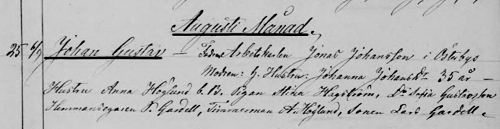 Augusti Månad.
25 4/9 Johan Gustav — Fadren Arbetskarlen Jonas Johansson i Österby
Modren: g. Hustru Johanna Johansdr 35 år —
Hustru Anna Höglund i. B. Pigan Mina Hagström, Dr Sofia Gustavsson
Hemmansegaren P. Gardell, Timmerman A. Höglund, Sonen Lars Gardell.